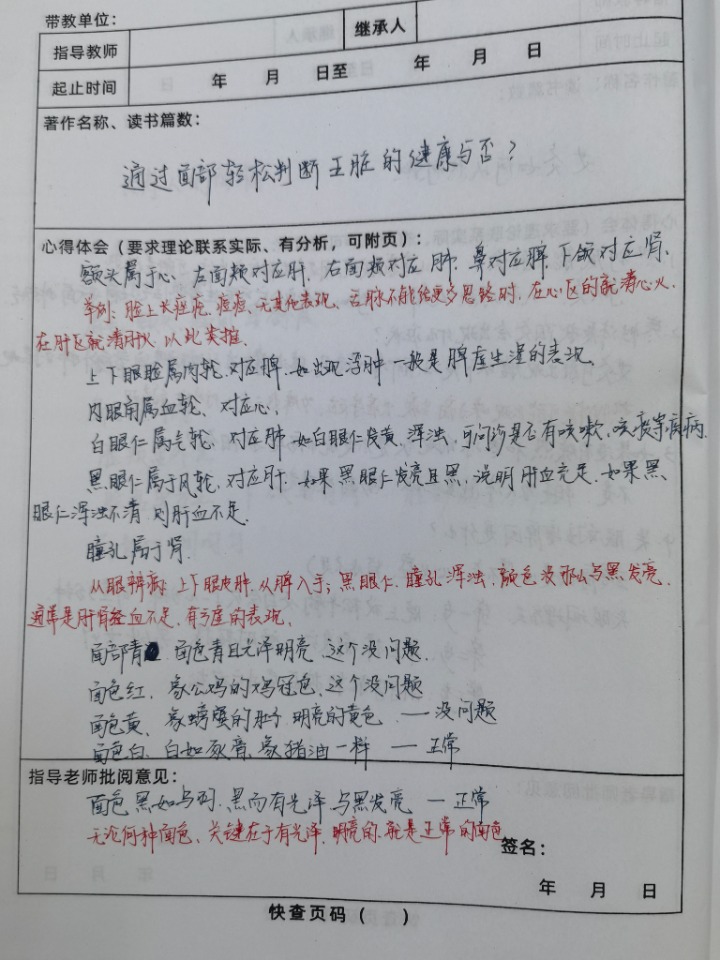 带教单位：
指导教师 继承人
起止时间 年 月 日至 年 月 日
著作名称、读书篇数：
通过面部轻松判断五脏的健康与否？
心得体会（要求理论联系实际、有分析，可附页）：
额头属于心、左面颊对应肝，右面颊对应肺，鼻对应脾，下颌对应肾、
举例：脸上长痘疮、痘痘，无其他表现、舌脉不能给更多思路时，在心区的就清心火，
在肝区就清肝火，以此类推
上下眼睑属肉轮、对应脾、如出现浮肿一般是脾虚生湿的表现、
内眼角属血轮、对应心、
白眼仁属气轮，对应肺，如白眼仁发黄、浑浊，可问诊是否有咳嗽、咳痰等疾病
黑眼仁属于风轮，对应肝，如果黑眼仁发亮且黑，说明肝血充足，如果黑
眼仁浑浊不清 则肝血不足.
瞳孔属于肾.
从眼辨病：上下眼皮肿，从脾入手；黑眼仁、瞳孔浑浊，颜色没那么乌黑发亮，
通常是肝肾经血不足，有亏虚的表现、
面部青 面色青且光泽明亮、这个没问题.
面色红，象公鸡的鸡冠色、这个没问题
面色黄、象螃蟹的肚子，明亮的黄色 — 没问题
面色白、白如豕膏、象猪油一样 — 正常
指导老师批阅意见：
面色黑如乌羽、黑而有光泽 乌黑发亮 — 正常
无论何种面色、关键在于有光泽，明亮的，就是正常的面色
签名：
年 月 日
快查页码（ ）